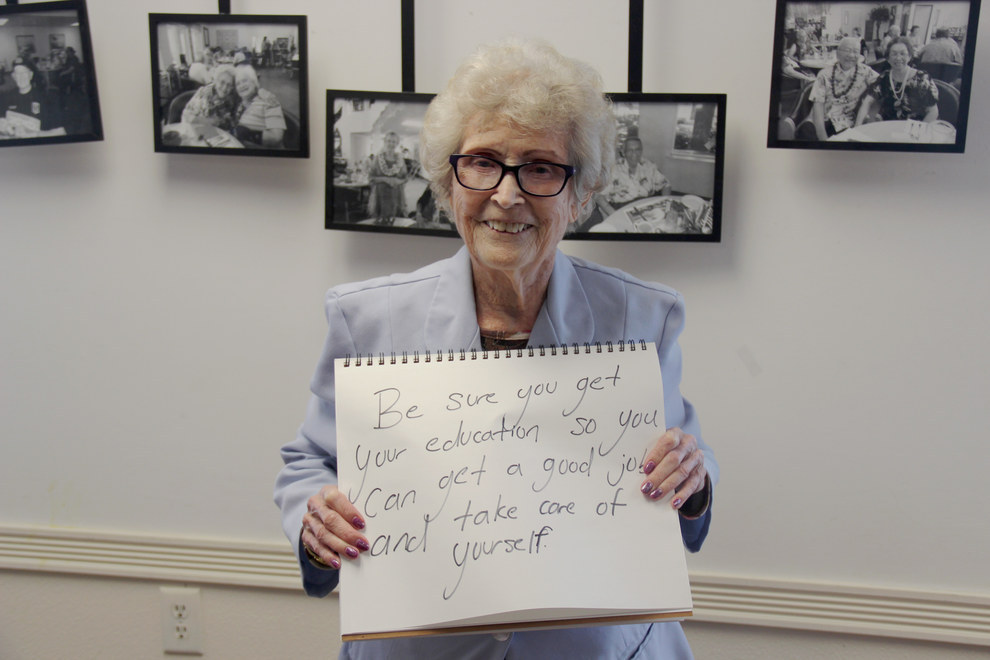 Be sure you get
your education so you
can get a good job
and take care of
yourself.